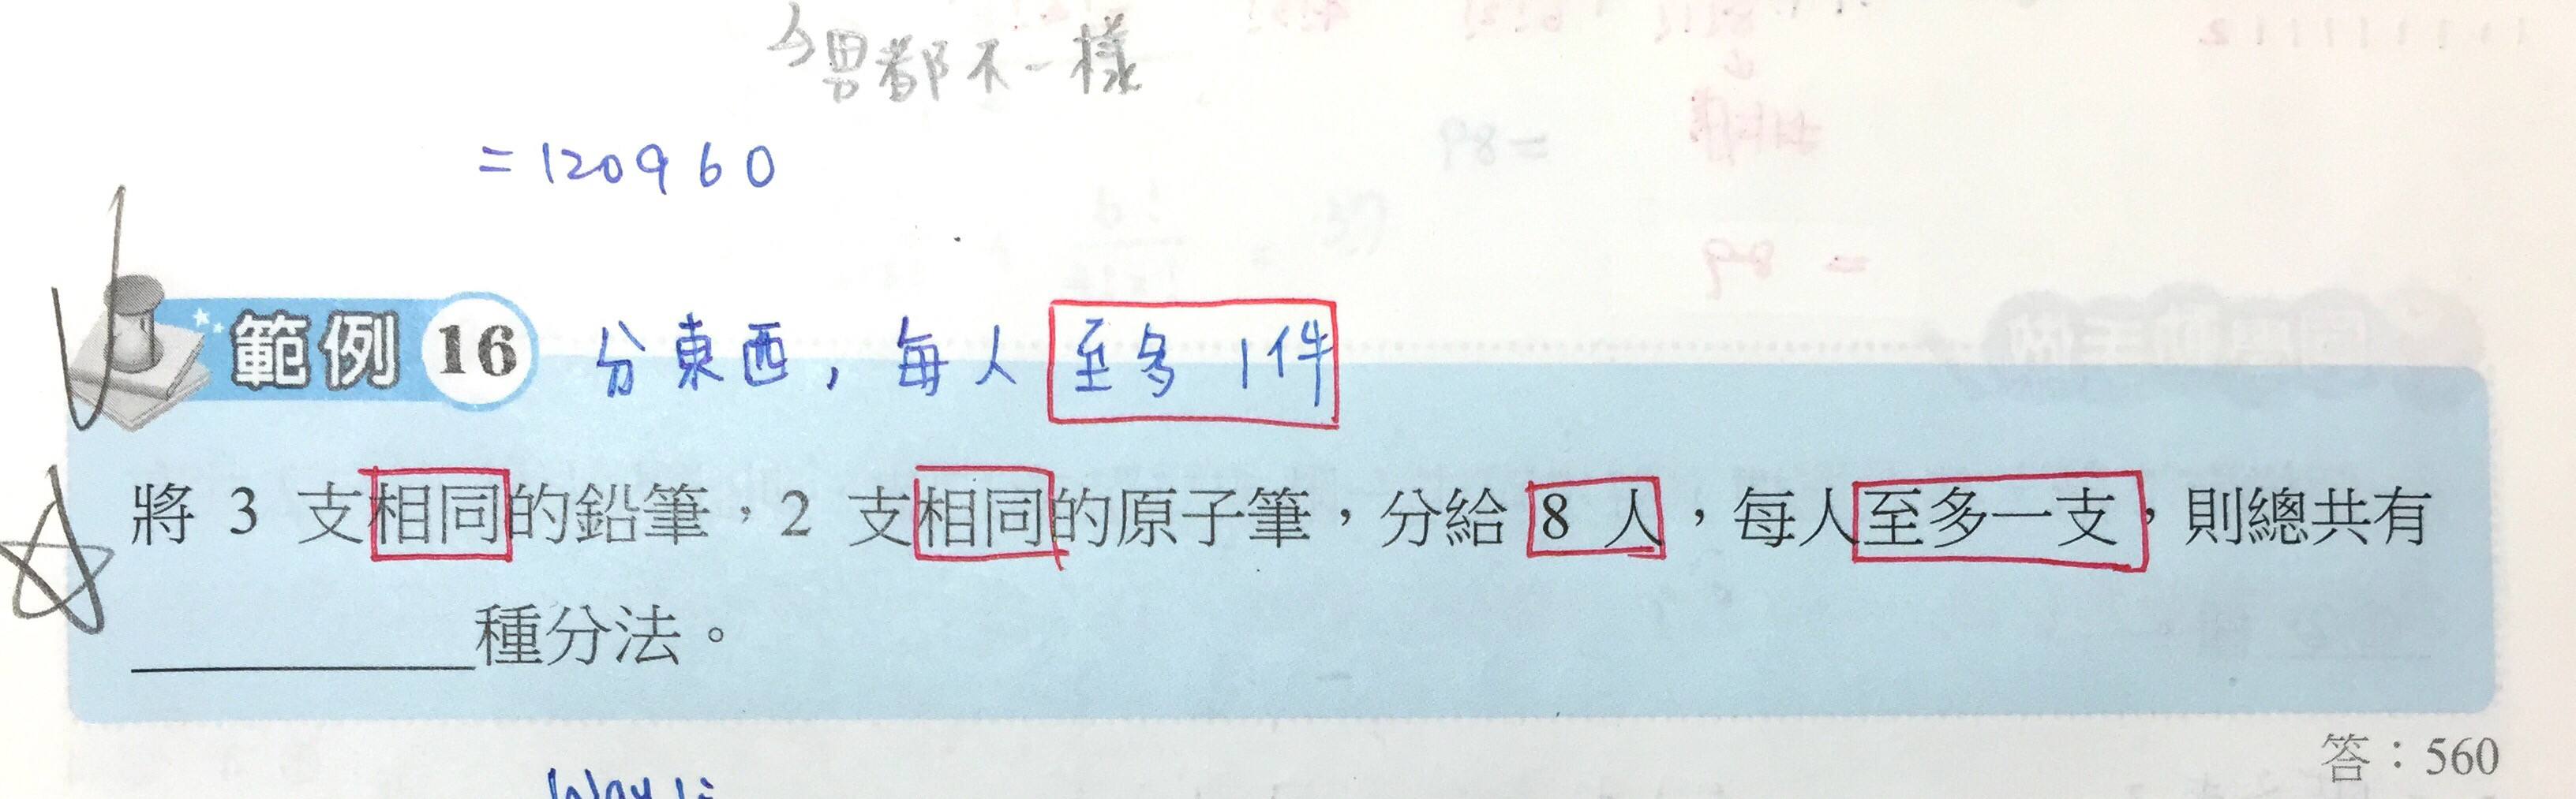 都不一樣
= 120960
範例 16 分東西，每人至多1件
將 3 支相同的鉛筆，2 支相同的原子筆，分給 8 人，每人至多一支，則總共有
種分法。
答：560